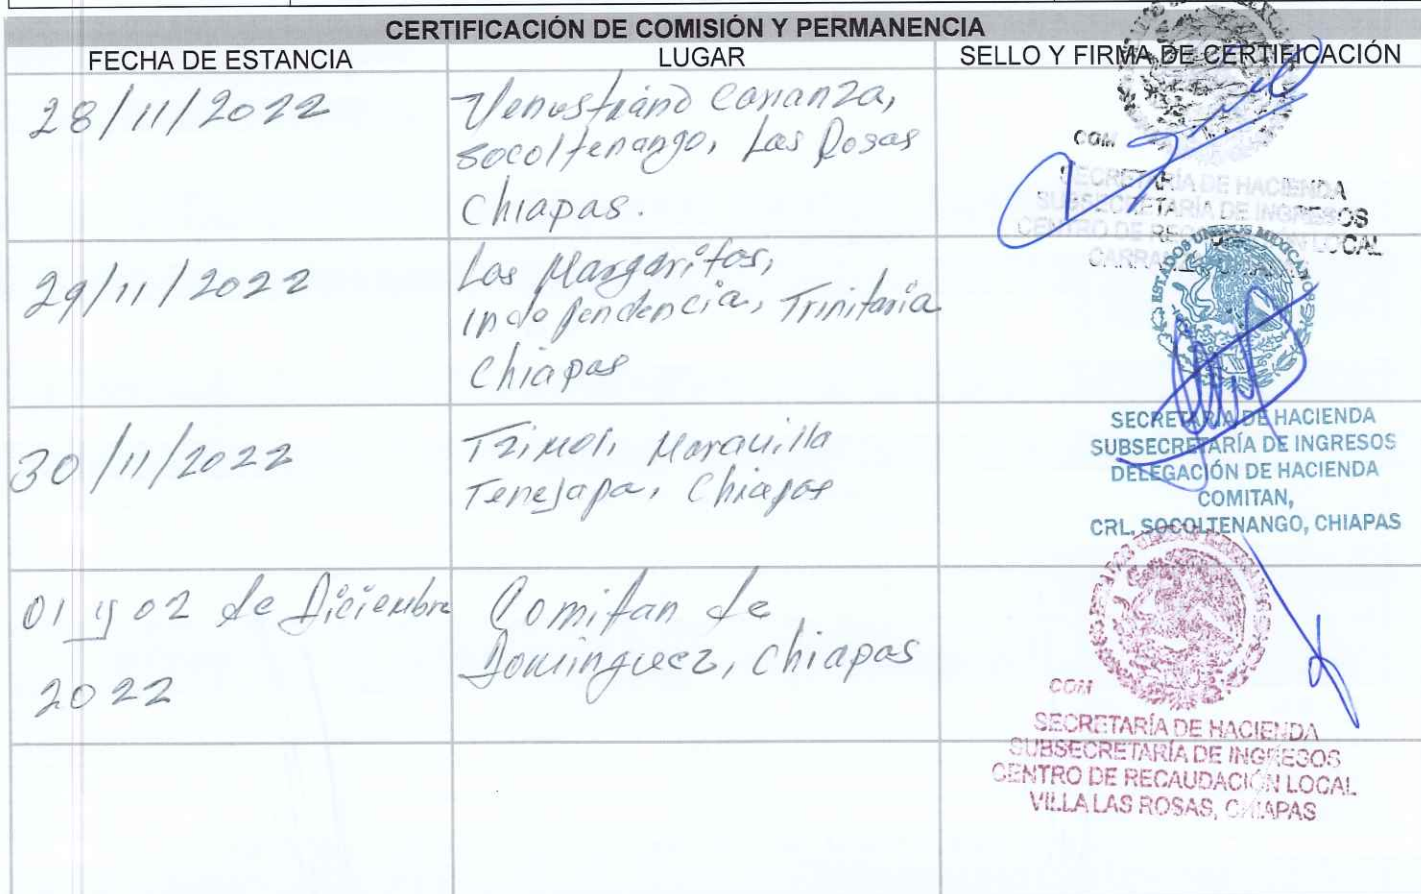 CERTIFICACIÓN DE COMISIÓN Y PERMANENCIA
FECHA DE ESTANCIA
LUGAR
SELLO Y FIRMA DE CERTIFICACIÓN
28/11/2022
Venustiano Carranza,
Socoltenango, Las Rosas
Chiapas.
COM
SECRETARÍA DE HACIENDA
SUBSECRETARÍA DE INGRESOS
CENTRO DE RECAUDACIÓN LOCAL
29/11/2022
Las Margaritas,
Independencia, Trinitaria
Chiapas
ESTADOS UNIDOS MEXICANOS
30/11/2022
Tzimol, Maravilla
Tenejapa, Chiapas
SECRETARÍA DE HACIENDA
SUBSECRETARÍA DE INGRESOS
DELEGACIÓN DE HACIENDA
COMITAN,
CRL. SOCOLTENANGO, CHIAPAS
01 y 02 de Diciembre
2022
Comitan de
Dominguez, Chiapas
ESTADOS UNIDOS MEXICANOS
COM
SECRETARÍA DE HACIENDA
SUBSECRETARÍA DE INGRESOS
CENTRO DE RECAUDACIÓN LOCAL
VILLA LAS ROSAS, CHIAPAS